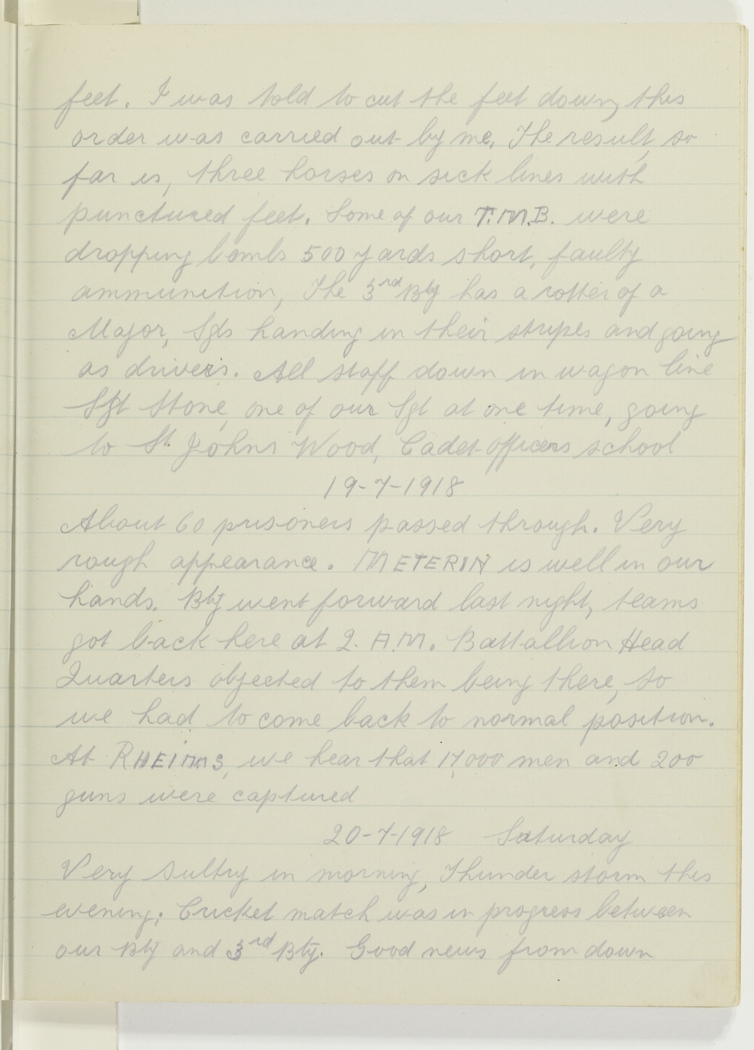 feet. I was told to cut the feet down, this
order was carried out by me. The result, so
far is, three horses on sick lines with
punctured feet. Some of our T.M.B. were
dropping bombs 500 yards short, faulty
ammunition, The 3rd Bty has a rotter of a
Major, Sgts handing in their stripes and going
as drivers. All staff down in wagon line
Sgt Stone, one of our Sgt at one time, going
to St Johns Wood, Cadet officers school
19-7-1918
About 60 prisoners passed through. Very
rough appearance. METERIN is well in our
hands. Bty went forward last night, teams
got back here at 2. A.M. Battallion Head
Quarters objected to them being there, so
we had to come back to normal position.
At RHEIMS, we hear that 17,000 men and 200
guns were captured
20-7-1918 Saturday
Very sultry in morning, Thunder storm this
evening. Cricket match was in progress between
our Bty and 3rd Bty. Good news from down